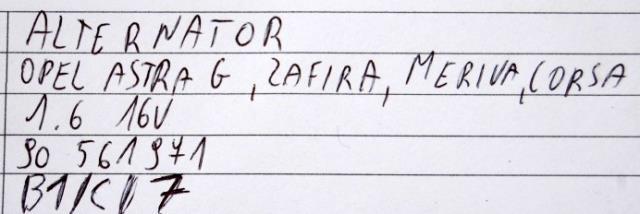 ALTERNATOR
OPEL ASTRA G, ZAFIRA, MERIVA, CORSA
1.6 16V
90 561 971
B1/C/7